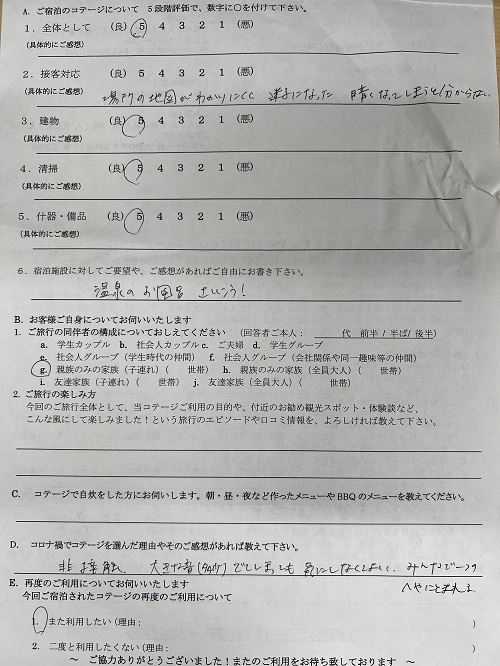 A. ご宿泊のコテージについて 5段階評価で、数字に〇を付けて下さい。
1. 全体として (良) 5 4 3 2 1 (悪)
(具体的にご感想)
2. 接客対応 (良) 5 4 3 2 1 (悪)
(具体的にご感想) 場所の地図がわかりにくく 迷子になった 暗くなってしまうと分からない
3. 建物 (良) 5 4 3 2 1 (悪)
(具体的にご感想)
4. 清掃 (良) 5 4 3 2 1 (悪)
(具体的にご感想)
5. 什器・備品 (良) 5 4 3 2 1 (悪)
(具体的にご感想)
6. 宿泊施設に対してご要望や、ご感想があればご自由にお書き下さい。
温泉のお風呂 さいこう!
B. お客様ご自身についてお伺いいたします
1. ご旅行の同伴者の構成についておしえてください (回答者ご本人: 代 前半 / 半ば / 後半)
a. 学生カップル b. 社会人カップル c. ご夫婦 d. 学生グループ
e. 社会人グループ (学生時代の仲間) f. 社会人グループ (会社関係や同一趣味等の仲間)
g. 親族のみの家族 (子連れ) ( 世帯) h. 親族のみの家族 (全員大人) ( 世帯)
i. 友達家族 (子連れ) ( 世帯) j. 友達家族 (全員大人) ( 世帯)
2. ご旅行の楽しみ方
今回のご旅行全体として、当コテージご利用の目的や、付近のお勧め観光スポット・体験談など、
こんな風にして楽しみました!という旅行のエピソードや口コミ情報を、よろしければ教えて下さい。
C. コテージで自炊をした方にお伺いします。朝・昼・夜など作ったメニューやBBQのメニューを教えてください。
D. コロナ禍でコテージを選んだ理由やそのご感想があれば教えて下さい。
非接触、 大きな音 でてしまっても 気にしなくてよい、 みんなで一つの
へやにとまれる
E. 再度のご利用についてお伺いいたします
今回ご宿泊されたコテージの再度のご利用について
1. また利用したい (理由: )
2. 二度と利用したくない (理由: )
～ ご協力ありがとうございました!またのご利用をお待ち致しております ～